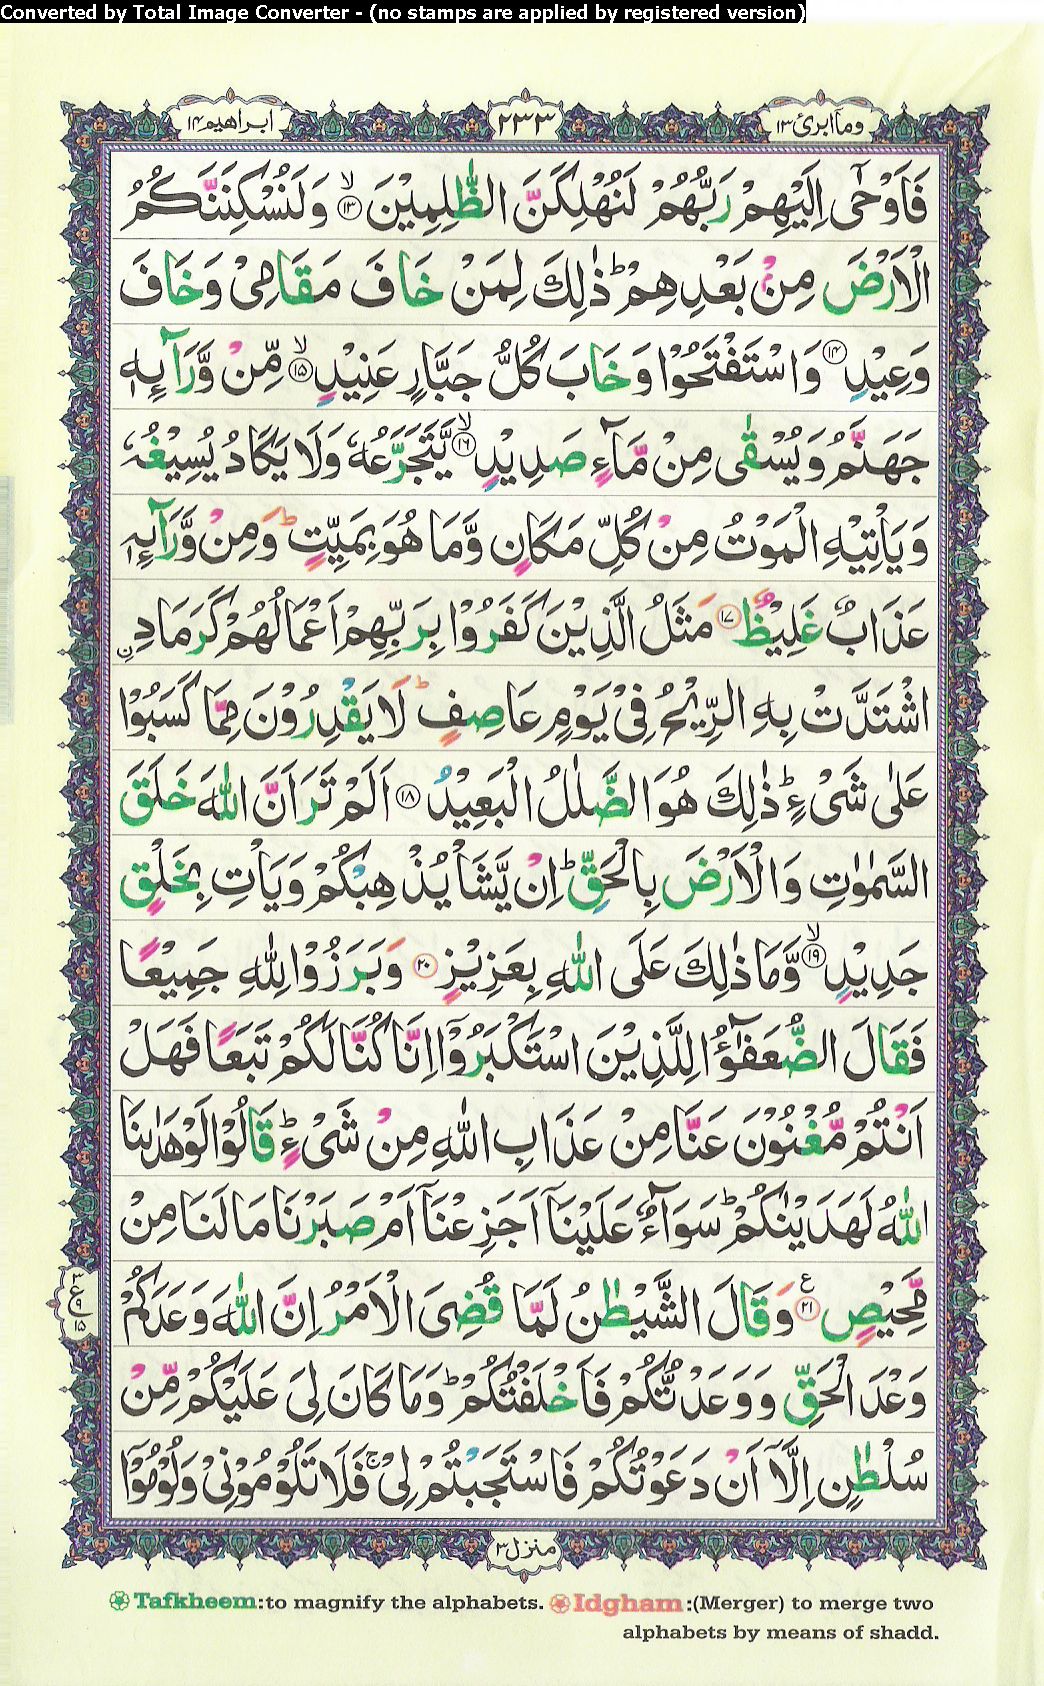 Converted by Total Image Converter - (no stamps are applied by registered version)
وماۤ ابرئ ١٣ ٢٣٣ ابراهيم ١٤
فَاَوْحٰۤى اِلَيْهِمْ رَبُّهُمْ لَنُهْلِكَنَّ الظّٰلِمِيْنَ ۙ‏﴿۱۳﴾ وَلَنُسْكِنَنَّكُمُ
الْاَرْضَ مِنْۢ بَعْدِهِمْ ؕ ذٰلِكَ لِمَنْ خَافَ مَقَامِىْ وَخَافَ
وَعِيْدِ ﴿۱۴﴾ وَاسْتَفْتَحُوْا وَخَابَ كُلُّ جَبَّارٍ عَنِيْدٍ ۙ﴿۱۵﴾ مِّنْ وَّرَآئِهٖ
جَهَنَّمُ وَيُسْقٰى مِنْ مَّآءٍ صَدِيْدٍ ۙ﴿۱۶﴾ يَّتَجَرَّعُهٗ وَلَا يَكَادُ يُسِيْغُهٗ
وَيَاْتِيْهِ الْمَوْتُ مِنْ كُلِّ مَكَانٍ وَّمَا هُوَ بِمَيِّتٍ ؕ وَمِنْ وَّرَآئِهٖ
عَذَابٌ غَلِيْظٌ ﴿۱۷﴾ مَثَلُ الَّذِيْنَ كَفَرُوْا بِرَبِّهِمْ اَعْمَالُهُمْ كَرَمَادِ ۨ
اشْتَدَّتْ بِهِ الرِّيْحُ فِىْ يَوْمٍ عَاصِفٍ ؕ لَا يَقْدِرُوْنَ مِمَّا كَسَبُوْا
عَلٰى شَىْءٍ ؕ ذٰلِكَ هُوَ الضَّلٰلُ الْبَعِيْدُ ﴿۱۸﴾ اَلَمْ تَرَ اَنَّ اللّٰهَ خَلَقَ
السَّمٰوٰتِ وَالْاَرْضَ بِالْحَقِّ ؕ اِنْ يَّشَاْ يُذْهِبْكُمْ وَيَاْتِ بِخَلْقٍ
جَدِيْدٍ ۙ﴿۱۹﴾ وَّمَا ذٰلِكَ عَلَى اللّٰهِ بِعَزِيْزٍ ﴿۲۰﴾ وَبَرَزُوْا لِلّٰهِ جَمِيْعًا
فَقَالَ الضُّعَفٰٓؤُا لِلَّذِيْنَ اسْتَكْبَرُوْۤا اِنَّا كُنَّا لَكُمْ تَبَعًا فَهَلْ
اَنْتُمْ مُّغْنُوْنَ عَنَّا مِنْ عَذَابِ اللّٰهِ مِنْ شَىْءٍ ؕ قَالُوْا لَوْ هَدٰٮنَا
اللّٰهُ لَهَدَيْنٰكُمْ ؕ سَوَآءٌ عَلَيْنَاۤ اَجَزِعْنَاۤ اَمْ صَبَرْنَا مَا لَنَا مِنْ
مَّحِيْصٍ ﴿۲۱﴾ ع وَقَالَ الشَّيْطٰنُ لَمَّا قُضِىَ الْاَمْرُ اِنَّ اللّٰهَ وَعَدَكُمْ
٣ ع ٩ ١٥
وَعْدَ الْحَقِّ وَوَعَدْتُّكُمْ فَاَخْلَفْتُكُمْ ؕ وَمَا كَانَ لِىَ عَلَيْكُمْ مِّنْ
سُلْطٰنٍ اِلَّاۤ اَنْ دَعَوْتُكُمْ فَاسْتَجَبْتُمْ لِىْ ۚ فَلَا تَلُوْمُوْنِىْ وَلُوْمُوْۤا
منزل ٣
Tafkheem:to magnify the alphabets. Idgham:(Merger) to merge two
alphabets by means of shadd.